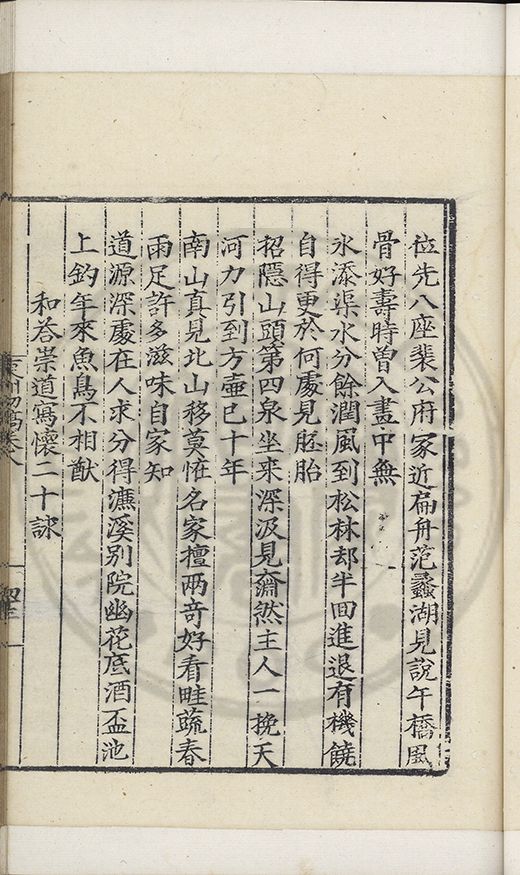 位先八座裴公府冢近扁舟范蠡湖見說午橋風
骨好壽時曽入畫中無
水添渠水分餘潤風到松林却半回進退有機饒
自得更於何處見胚胎
招隱山頭第四泉坐来深汲見奫然主人一挽天
河力引到方壺已十年
南山真見北山移莫恠名家擅兩奇好看畦蔬春
雨足許多滋味自家知
道源深處在人求分得濂溪別院幽花底酒盃池
上釣年來魚鳥不相猷
和荅崇道寫懷二十詠